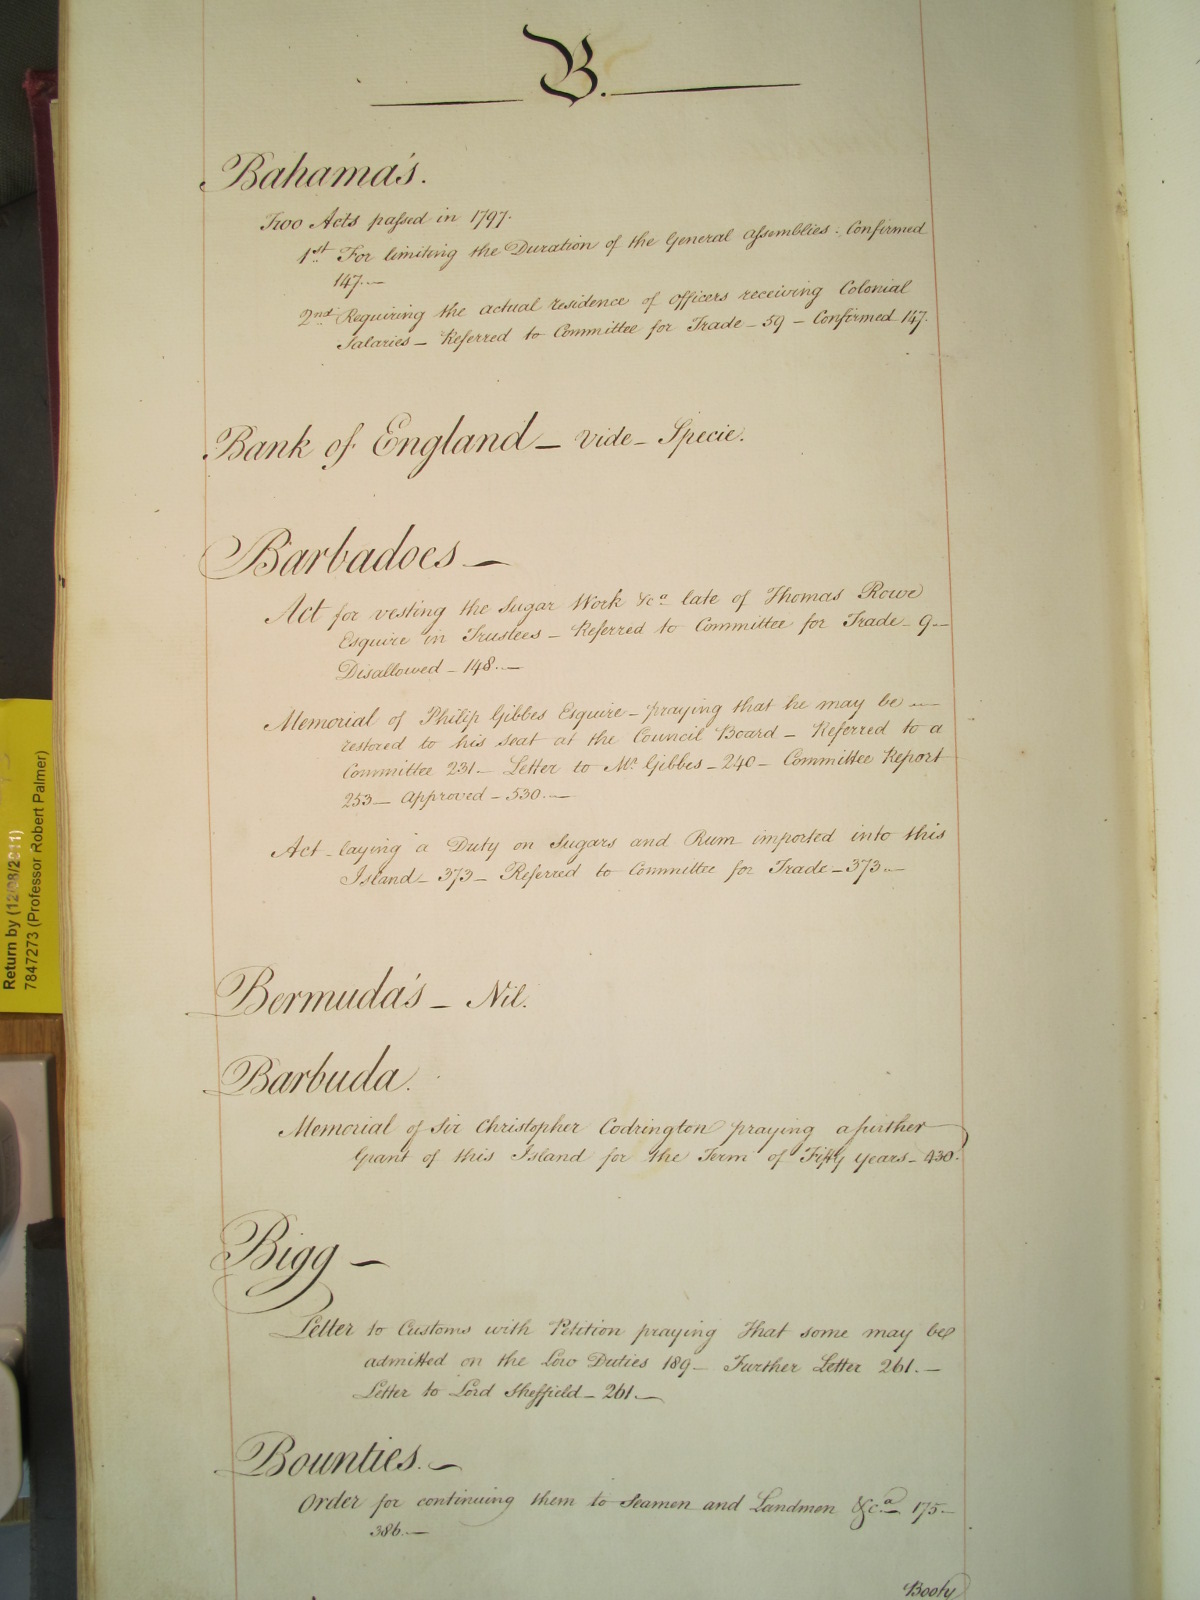 B.
Bahama's.
Two Acts passed in 1797.
1st For limiting the Duration of the General Assemblies: Confirmed
147.—
2nd Requiring the actual residence of Officers receiving Colonial
Salaries — Referred to Committee for Trade — 59 — Confirmed 147.
Bank of England — vide — Specie.
Barbadoes —
Act for vesting the Sugar Work &ca late of Thomas Rowe
Esquire in Trustees — Referred to Committee for Trade — 9 —
Disallowed — 148. —
Memorial of Philip Gibbes Esquire — praying that he may be —
restored to his seat at the Council Board — Referred to a
Committee 231 — Letter to Mr. Gibbes — 240 — Committee Report
253 — Approved — 530. —
Act laying a Duty on Sugars and Rum imported into this
Island — 373 — Referred to Committee for Trade — 373 —
Bermuda's — Nil.
Barbuda.
Memorial of Sir Christopher Codrington praying a further
Grant of this Island for the Term of Fifty Years — 430.
Bigg —
Letter to Customs with Petition praying that some may be
admitted on the Low Duties 189 — Further Letter 261. —
Letter to Lord Sheffield — 261. —
Bounties. —
Order for continuing them to Seamen and Landmen &ca. 175 —
386. —
Booty
Return by (12/08/2011)
7847273 (Professor Robert Palmer)